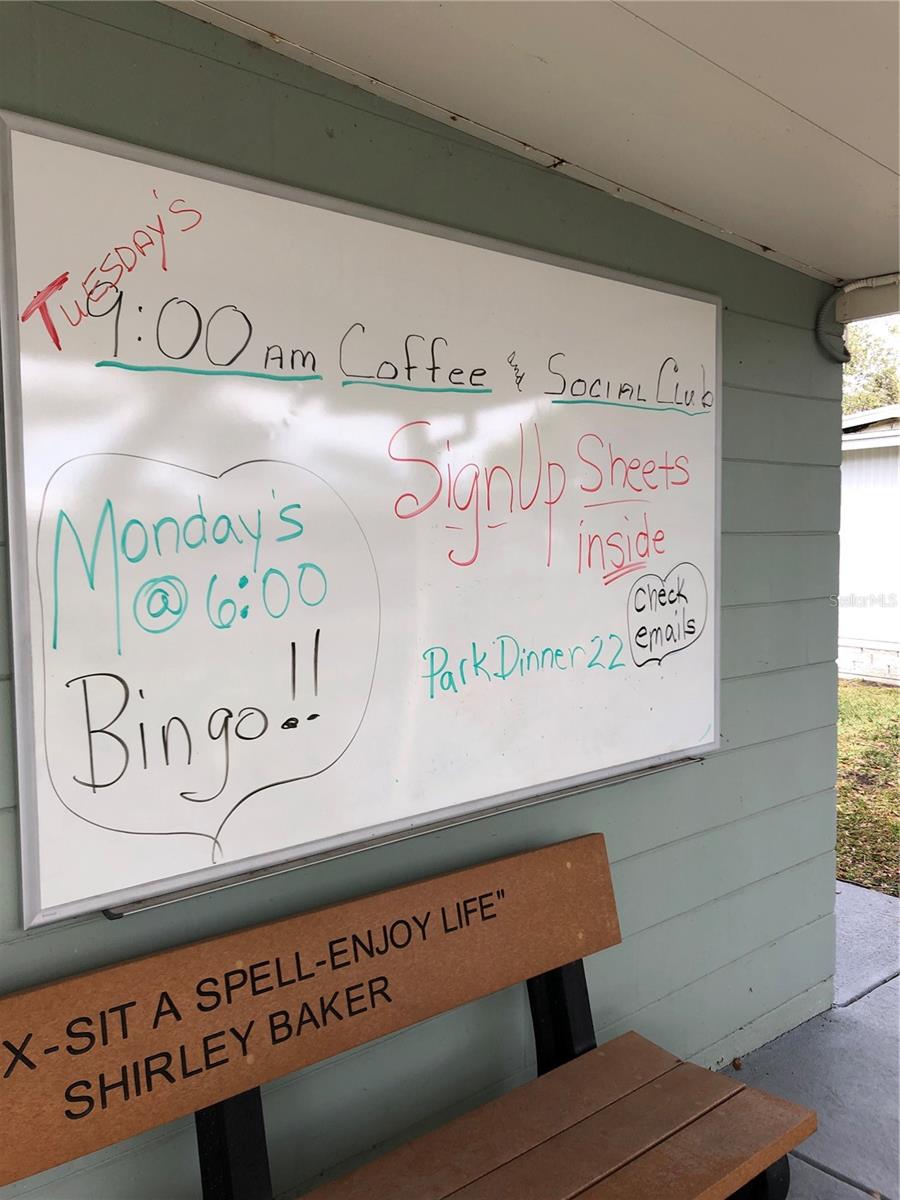 TUESDAY'S
9:00 AM Coffee & SOCIAL Club
SignUp Sheets
inside
Monday's
@ 6:00
Bingo!!
check
emails
Park Dinner 22
X-SIT A SPELL-ENJOY LIFE"
SHIRLEY BAKER
StellarMLS